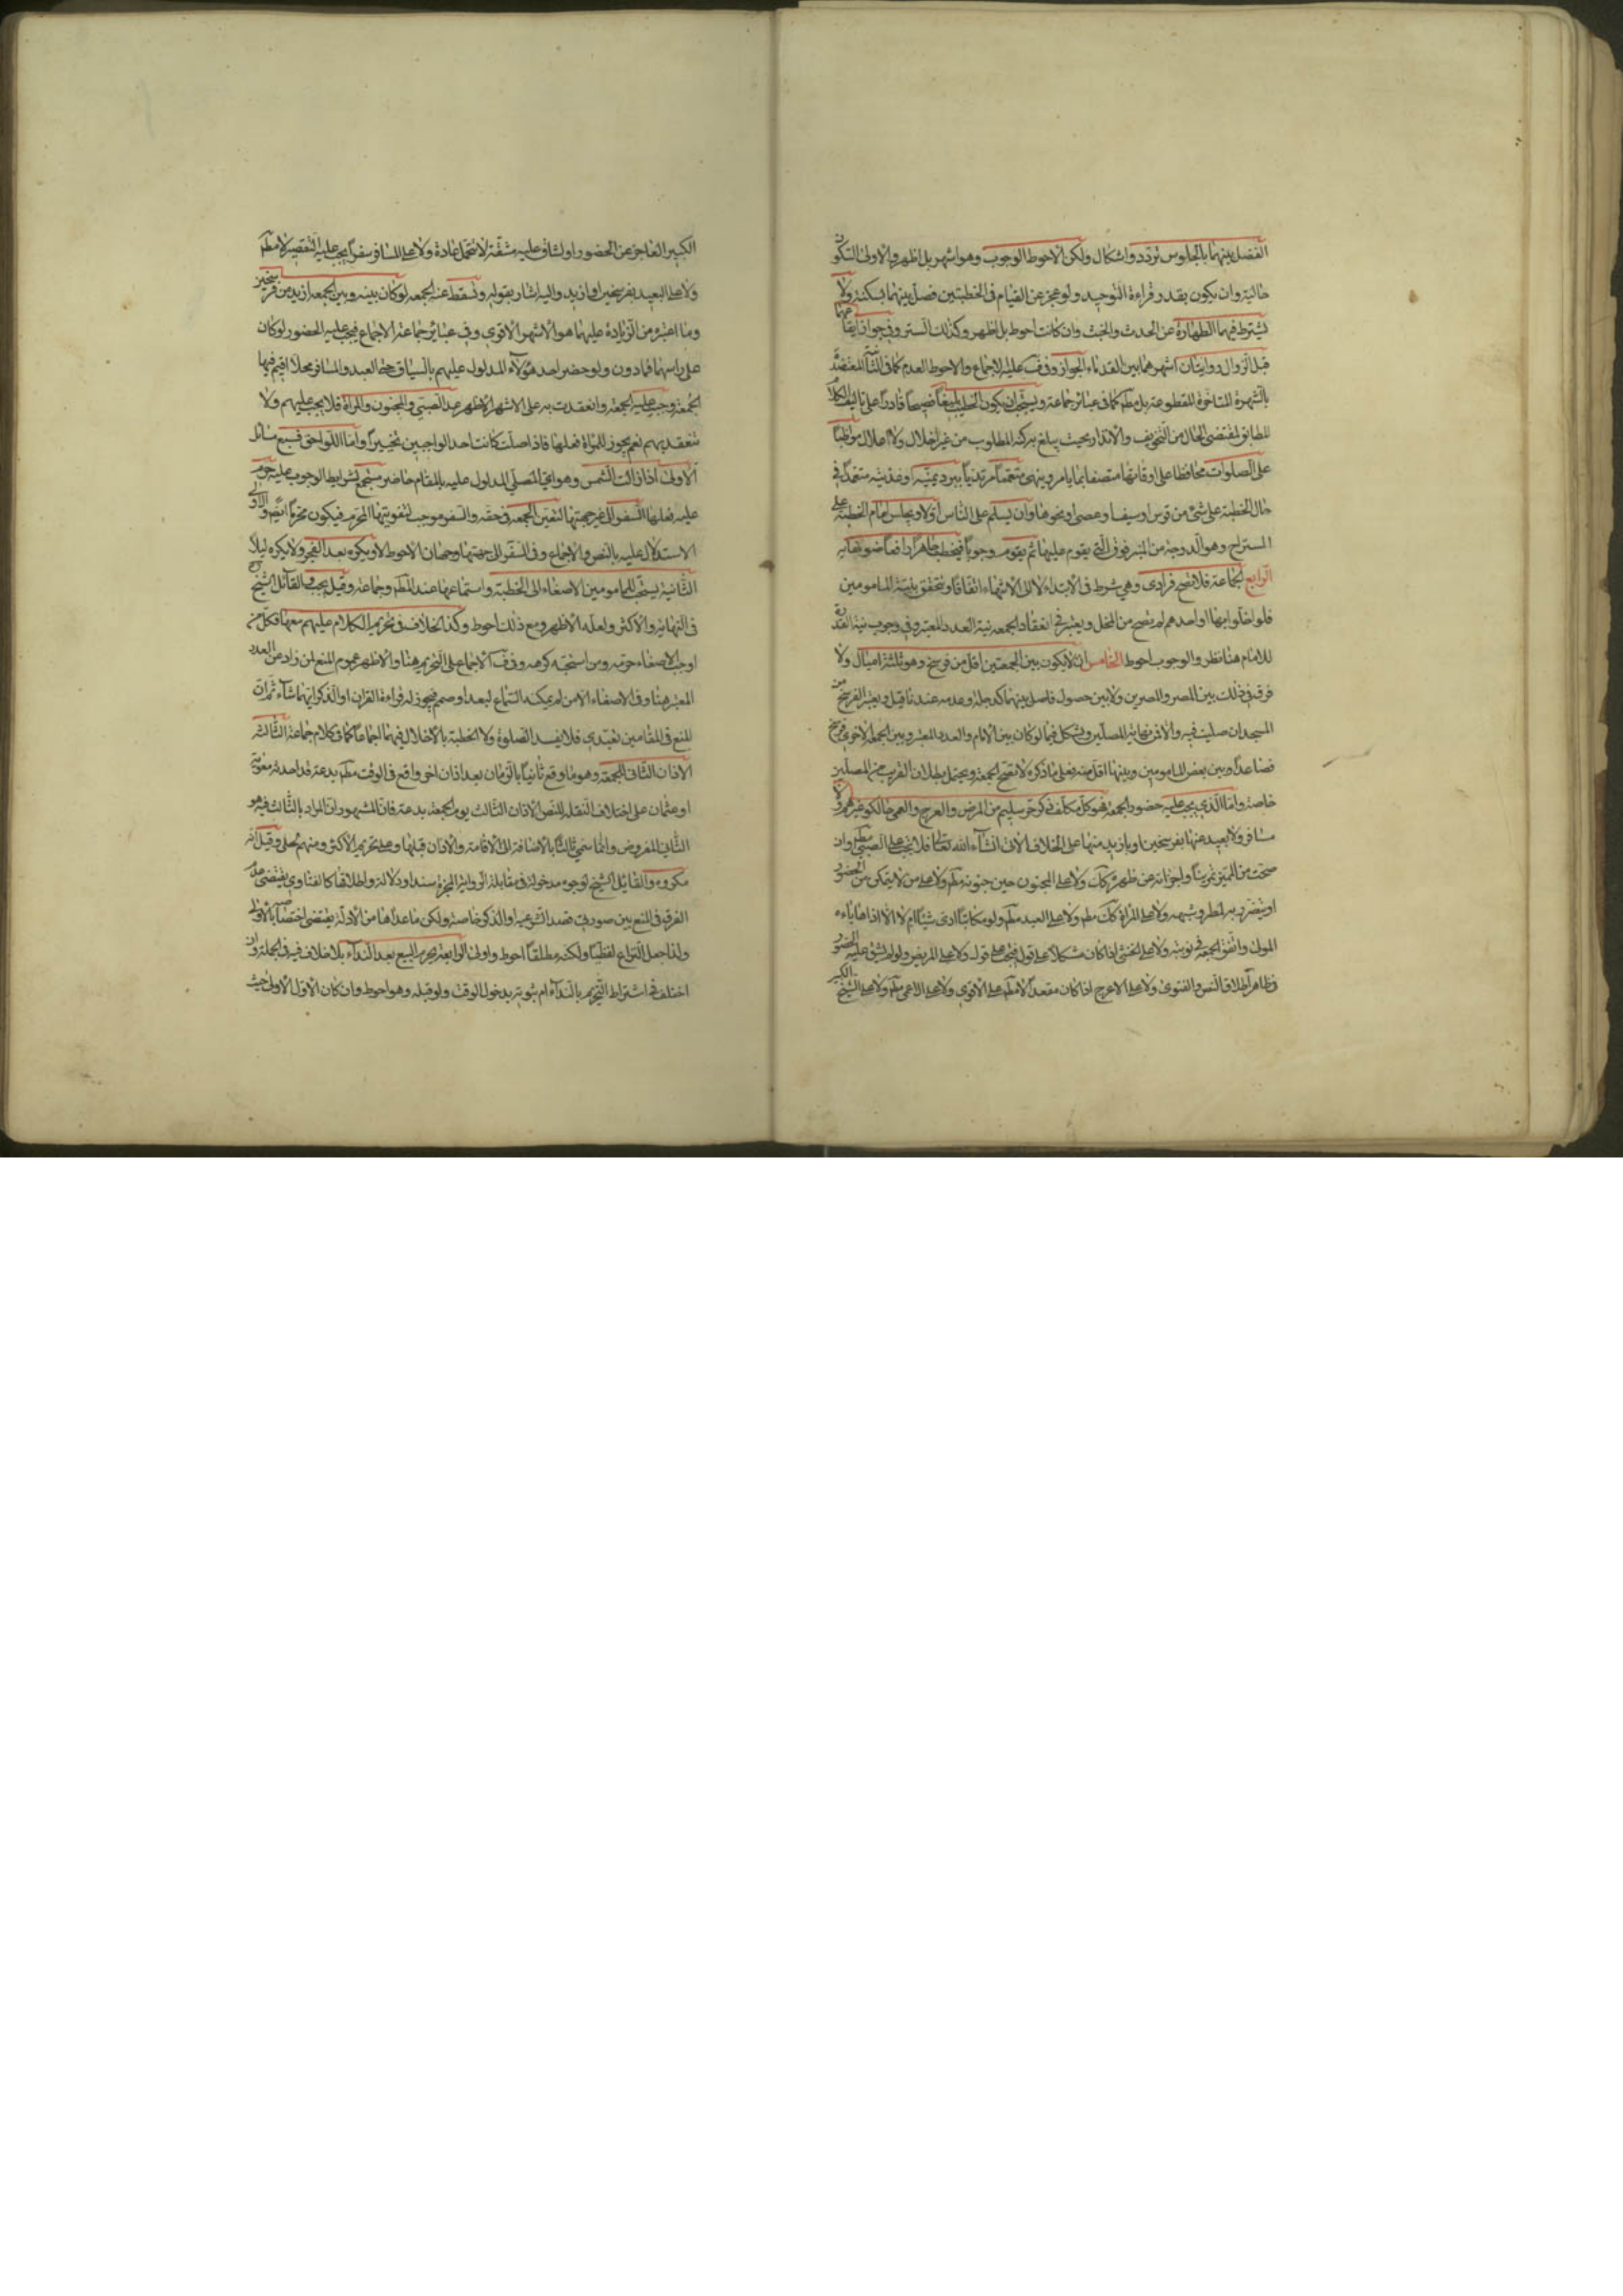 الفصل بينهما بالجلوس تردد واشكال ولكن الاحوط الوجوب وهو اشهر بل اظهر والاولى السكون
حاليته وان يكون بقدر قراءة التوحيد ولو عجز عن القيام في الخطبتين فصل بينهما بسكتة ولا
يشترط فيهما الطهارة عن الحدث والخبث وان كانت احوط بل اظهر وكذلك الستر وفي جواز ايقاعهما
قبل الزوال روايتان اشهرهما بين القدماء الجواز وفي ف عليه الاجماع والاحوط العدم كما في
بالشهرة المتاخرة المقطوعة بل مط كما في عبائر جماعة ويستحب ان يكون الخطيب بليغا فصيحا قادرا على تاليف الكلام
المطابق لمقتضى الحال من التخويف والانذار بحيث يبلغ به كنه المطلوب من غير اخلال ولا املال مواظبا
على الصلوات محافظا على اوقاتها متصفا بما يامر وينهى متعمما مرتديا ببرد يمنية او عدنية معتمدا في
حال الخطبة على شيء من قوس او سيف او عصى او نحوها وان يسلم على الناس اولا ويجلس امام الخطبة على
المستراح وهو الدرجة من المنبر فوق التي يقوم عليها ثم يقوم وجوبا فيخطب جاهرا رافعا صوته بها
الرابع الجماعة فلا تصح فرادى وهي شرط في الابتداء لا الى الانتهاء اتفاقا وتتحقق بنية المامومين
فلو اخلوا بها او احدهم لم يصح من المخل ويعتبر في انعقاد الجمعة نية العدد المعتبر وفي وجوب نية القدوة
للامام هنا نظر والوجوب احوط الخامس ان لا يكون بين الجمعتين اقل من فرسخ وهو ثلثة اميال ولا
فرق في ذلك بين المصر والمصرين ولا بين حصول فاصل بينهما كدجلة وعدمه عندنا قيل ويعتبر الفرسخ من
المسجد ان صليت فيه والا فمن نهاية المصلين ويشكل فيما لو كان بين الامام والعدد المعتبر وبين الجمعة الاخرى فرسخ
فصاعدا وبين بعض المامومين وبينها اقل منه فعلى ما ذكره لا تصح الجمعة ويحتمل بطلان القريب من المصلين
خاصة واما الذي يجب عليه حضور الجمعة فهو كل مكلف ذكر حر سليم من المرض والعرج والعمى حالكونه غير هم ولا
مسافر ولا بعيد عنها بفرسخين او بازيد منها على الخلاف الاتي انشاء الله تعالى فلا تجب على الصبي مط وان
صحت من المميز تمرينا واجزاته عن ظهره كك ولا على المجنون حين جنونه مط ولا على من لا يتمكن من الحضور
او يتضرر به لمطر وشبهه ولا على المراة كك مط ولا على العبد مط ولو مكاتبا ادى شيئا ام لا الا اذا هاياه
المولى واتفق الجمعة في نوبته ولا على الخنثى اذا كان مشكلا على قول فتجب على قول ولا على المريض ولو لم يشق عليه الحضور
في ظاهر اطلاق النص والفتوى ولا على الاعرج اذا كان مقعدا لا مط على الاقوى ولا على الاعمى مط ولا على الشيخ الكبير
الكبير العاجز عن الحضور او لشاق عليه مشقة لا تتحمل عادة ولا على المسافر سفرا يجب عليه التقصير لا مط
ولا على البعيد بفرسخين او ازيد واليه اشار بقوله وتسقط عن الجمعة لو كان بينه وبين الجمعة ازيد من فرسخين
وما اعتبره من الزيادة عليهما هو الاشهر الاقوى وفي عبائر جماعة الاجماع فيجب عليه الحضور لو كان
على راسهما فما دون ولو حضر احد هؤلاء المدلول عليهم بالسياق حتى العبد والمسافر محلا اقيم فيها
الجمعة وجب عليه الجمعة وانعقدت به على الاشهر الاظهر عدا الصبي والمجنون والمراة فلا يجب عليهم ولا
تنعقد بهم نعم يجوز للمراة فعلها فاذا صلت كانت احد الواجبين تخييرا واما اللواحق فسبع مسائل
الاولى اذا زالت الشمس وهو اي المصلي المدلول عليه بالمقام حاضر مستجمع لشرايط الوجوب عليه حرم
عليه فعلها السفر الى غير جهتها لتعين الجمعة في حقه والسفر موجب لتفويتها المحرم فيكون محرما ايضا والاولى
الاستدلال عليه بالنص والاجماع وفي السفر الى جهتها وجهان الاحوط لا ويكره بعد الفجر ولا يكره ليلا
الثانية يستحب للمامومين الاصغاء الى الخطبة واستماعها عند المط وجماعة وقيل يجب والقائل الشيخ
في النهاية والاكثر ولعله الاظهر ومع ذلك احوط وكذا الخلاف في تحريم الكلام عليهم معها فكل من
اوجب الاصغاء حرمه ومن استحبه كرهه وفي ف الاجماع على التحريم هنا والاظهر عموم المنع لمن زاد عن العدد
المعتبر هنا وفي الاصغاء الا من لم يمكنه السماع لبعد او صمم فيجوز له قراءة القران او الذكر ايهما شاء ثم ان
المنع في المقامين تعبدي فلا يفسد الصلوة ولا الخطبة بالاخلال فيهما اجماعا كما في كلام جماعة الثالثة
الاذان الثاني للجمعة وهو ما وقع ثانيا بالزمان بعد اذان اخر واقع في الوقت مط بدعة قد احدثه معوية
او عثمان على اختلاف النقلة للنص الاذان الثالث يوم الجمعة بدعة فان المشهور ان المراد بالثالث فيه هو
الثاني المفروض وانما سمي ثالثا بالاضافة الى الاقامة والاذان قبلها وعلى تحريمه الاكثر ومنهم الحلي وقيل انه
مكروه والقائل الشيخ لوجوه مدخولة في مقابلة الرواية المنجبرة سندا ودلالة واطلاقها كالفتاوى يقتضى عدم
الفرق في المنع بين صورتي قصد الشرعية او الذكر خاصة ولكن ما عداها من الادلة يقتضى اختصاصه بالاولى
ولذا جعل النزاع لفظيا ولكنه مطلقا احوط واولى الرابعة يحرم البيع بعد النداء بلا خلاف فيه في الجملة وان
اختلف في اشتراط التحريم بالنداء ام ثبوته بدخول الوقت ولو قبله وهو احوط وان كان الاول الاولى حيث